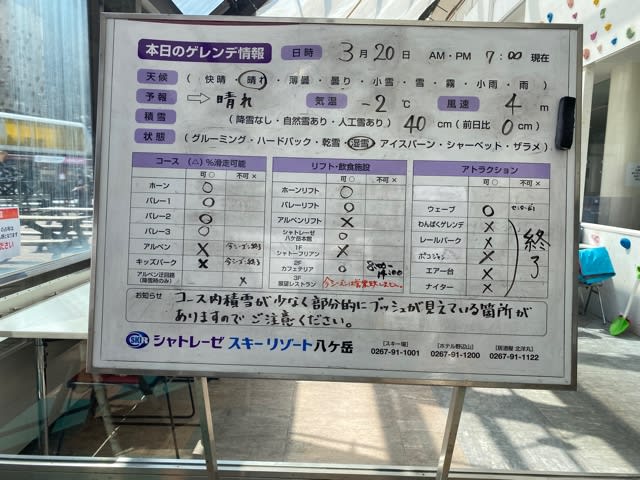 本日のゲレンデ情報 日時 3月20日 AM・PM 7:00現在
天候 (快晴・晴れ・薄曇・曇り・小雪・雪・霧・小雨・雨)
予報 ⇨ 晴れ 気温 -2℃ 風速 4m
積雪 (降雪なし・自然雪あり・人工雪あり) 40cm (前日比 0cm)
状態 (グルーミング・ハードパック・乾雪・湿雪・アイスバーン・シャーベット・ザラメ)
コース (△)%滑走可能
可○ 不可×
ホーン ○
パレー1 ○
パレー2 ○
パレー3 ○
アルペン × 今シーズン終了
キッズパーク × 今シーズン終了
アルペン迂回路(降雪時のみ) ×
リフト・飲食施設
可○ 不可×
ホーンリフト ○
パレーリフト ○
アルペンリフト ×
シャトレーゼ八ケ岳本館 ○
1Fシャトーフリアン ×
2Fカフェテリア ○ 8:00~14:00
3F展望レストラン 今シーズンは営業致しません。
アトラクション
可○ 不可×
ウェーブ ○
わんぱくゲレンデ ×
レールパーク ×
ポコジャン ×
エアー台 ×
ナイター ×
終了
お知らせ コース内積雪が少なく部分的にブッシュが見えている箇所が
ありますのでご注意ください。
SKiL シャトレーゼ スキーリゾート八ケ岳
[スキー場] 0267-91-1001
[ホテル野辺山] 0267-91-1200
[居酒屋 北洋丸] 0267-91-1122
ください